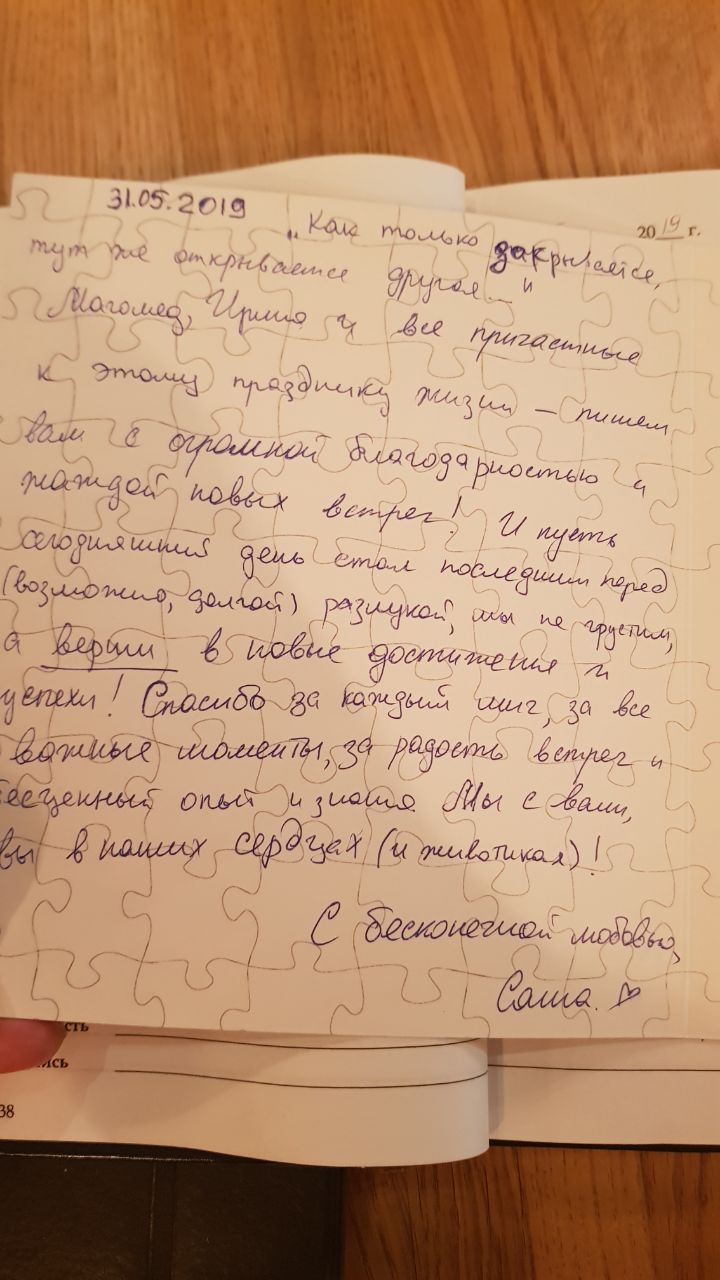 31.05.2019
„Как только закрывается,
20 19 г.
тут же открывается другая..."
Магомед, Ирина и все причастные
к этому празднику жизни – пишем
вам с огромной благодарностью и
жаждой новых встреч! И пусть
сегодняшний день стал последним перед
(возможно, долгой) разлукой, мы не грустим,
а верим в новые достижения и
успехи! Спасибо за каждый миг, за все
важные моменты, за радость встреч и
бесценный опыт и знания. Мы с вами,
вы в наших сердцах (и животиках)!
С бесконечной любовью,
Саша. ♡
сть
ись
38